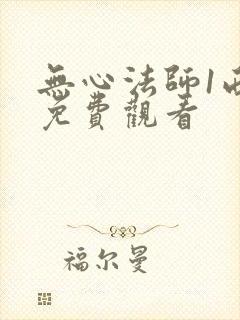 無心法師1西
免費觀看
福尔曼